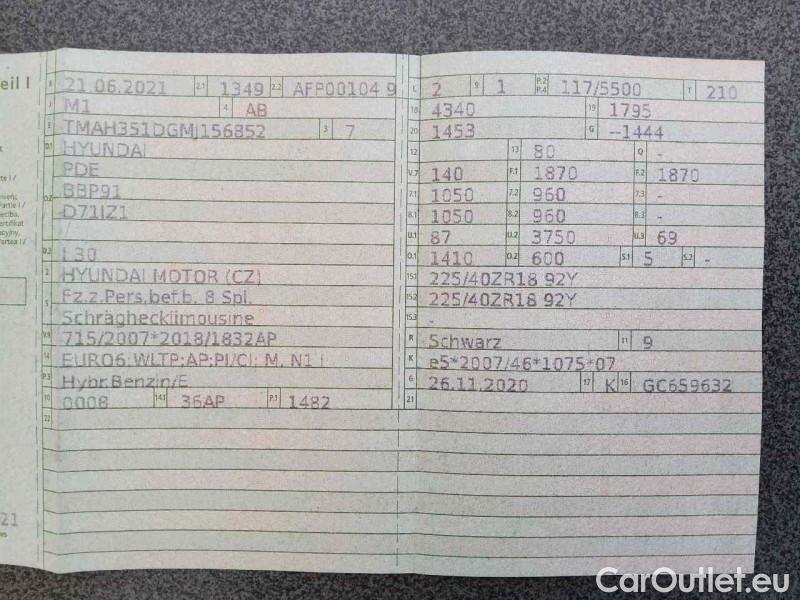 eil I
B 21.06.2021 2.1 1349 2.2 AFP00104 9
J M1 4 AB
E TMAH351DGMJ156852 3 7
D.1 HYUNDAI
D.2 PDE
BBP91
D71IZ1
/
D.3 I 30
2 HYUNDAI MOTOR (CZ)
5 Fz.z.Pers.bef.b. 8 Spl.
Schräghecklimousine
V.9 715/2007*2018/1832AP
14 EURO6;WLTP;AP;PI/CI; M, N1 I
P.3 Hybr.Benzin/E
10 0008 14.1 36AP P.1 1482
22
L 2 9 1 P.2 P.4 117/5500 T 210
18 4340 19 1795
20 1453 G --1444
12 13 80 Q -
V.7 140 F.1 1870 F.2 1870
7.1 1050 7.2 960 7.3 -
8.1 1050 8.2 960 8.3 -
U.1 87 U.2 3750 U.3 69
O.1 1410 O.2 600 S.1 5 S.2 -
15.1 225/40ZR18 92Y
15.2 225/40ZR18 92Y
15.3 -
R Schwarz 11 9
K e5*2007/46*1075*07
6 26.11.2020 17 K 16 GC659632
21
21
CarOutlet.eu